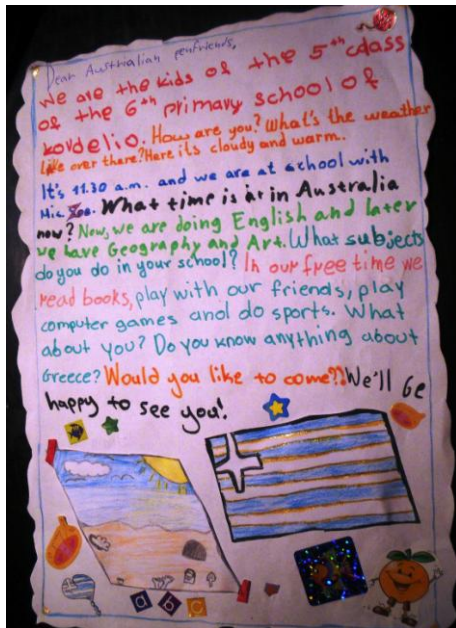 Dear Australian penfriends,
We are the kids of the 5th class
of the 6th primary school of
kordelio. How are you? What's the weather
like over there? Here its cloudy and warm.
It's 11.30 a.m. and we are at school with
What time is it in Australia
now? Now, we are doing English and later
we have Geography and Art. What subjects
do you do in your school? In our free time we
read books, play with our friends, play
computer games and do sports. What
about you? Do you know anything about
Greece? Would you like to come?? We'll be
happy to see you!
a b c